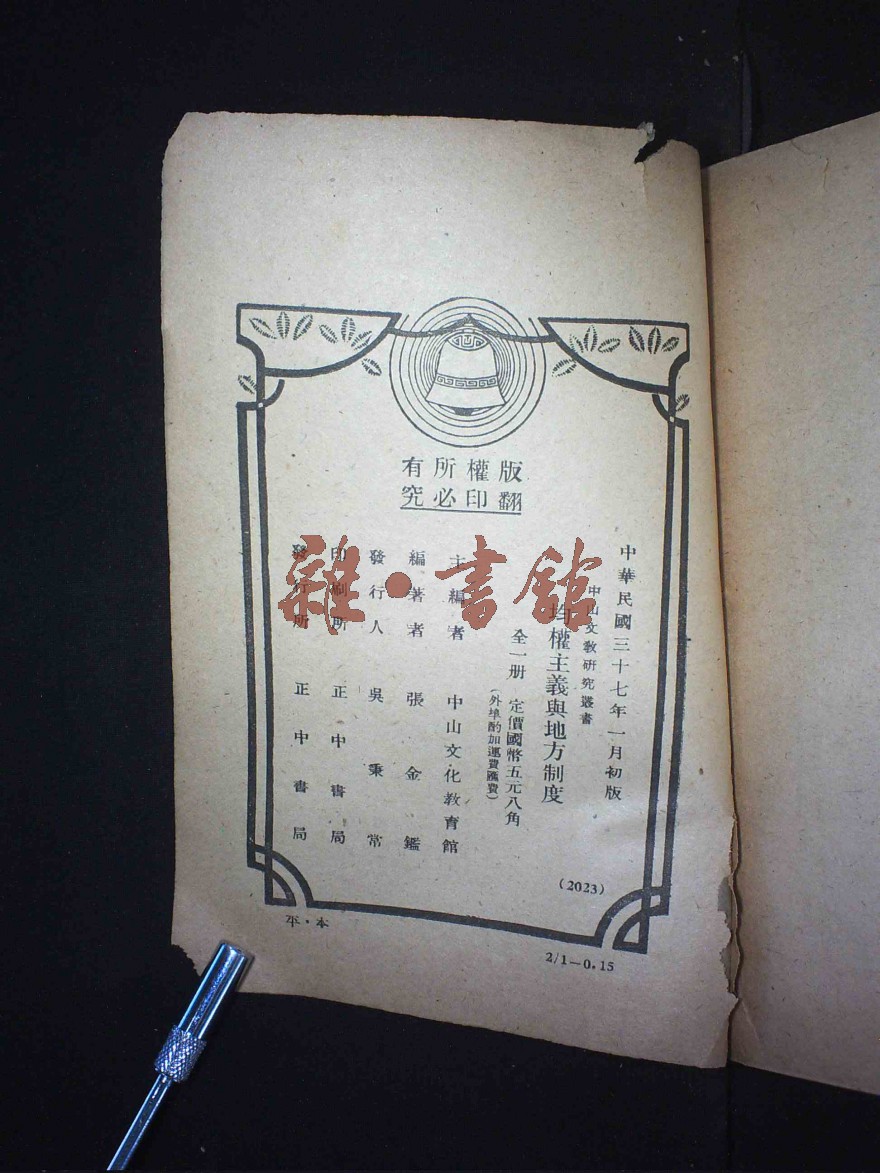 版權所有
翻印必究
中華民國三十七年一月初版
中山文教研究叢書
均權主義與地方制度
全一册 定價國幣五元八角
(外埠酌加運費匯費)
主編者 中山文化教育館
編著者 張金鑑
發行人 吳秉常
印刷所 正中書局
發行所 正中書局
(2023)
本·平
2/1—0.15
雜·書館